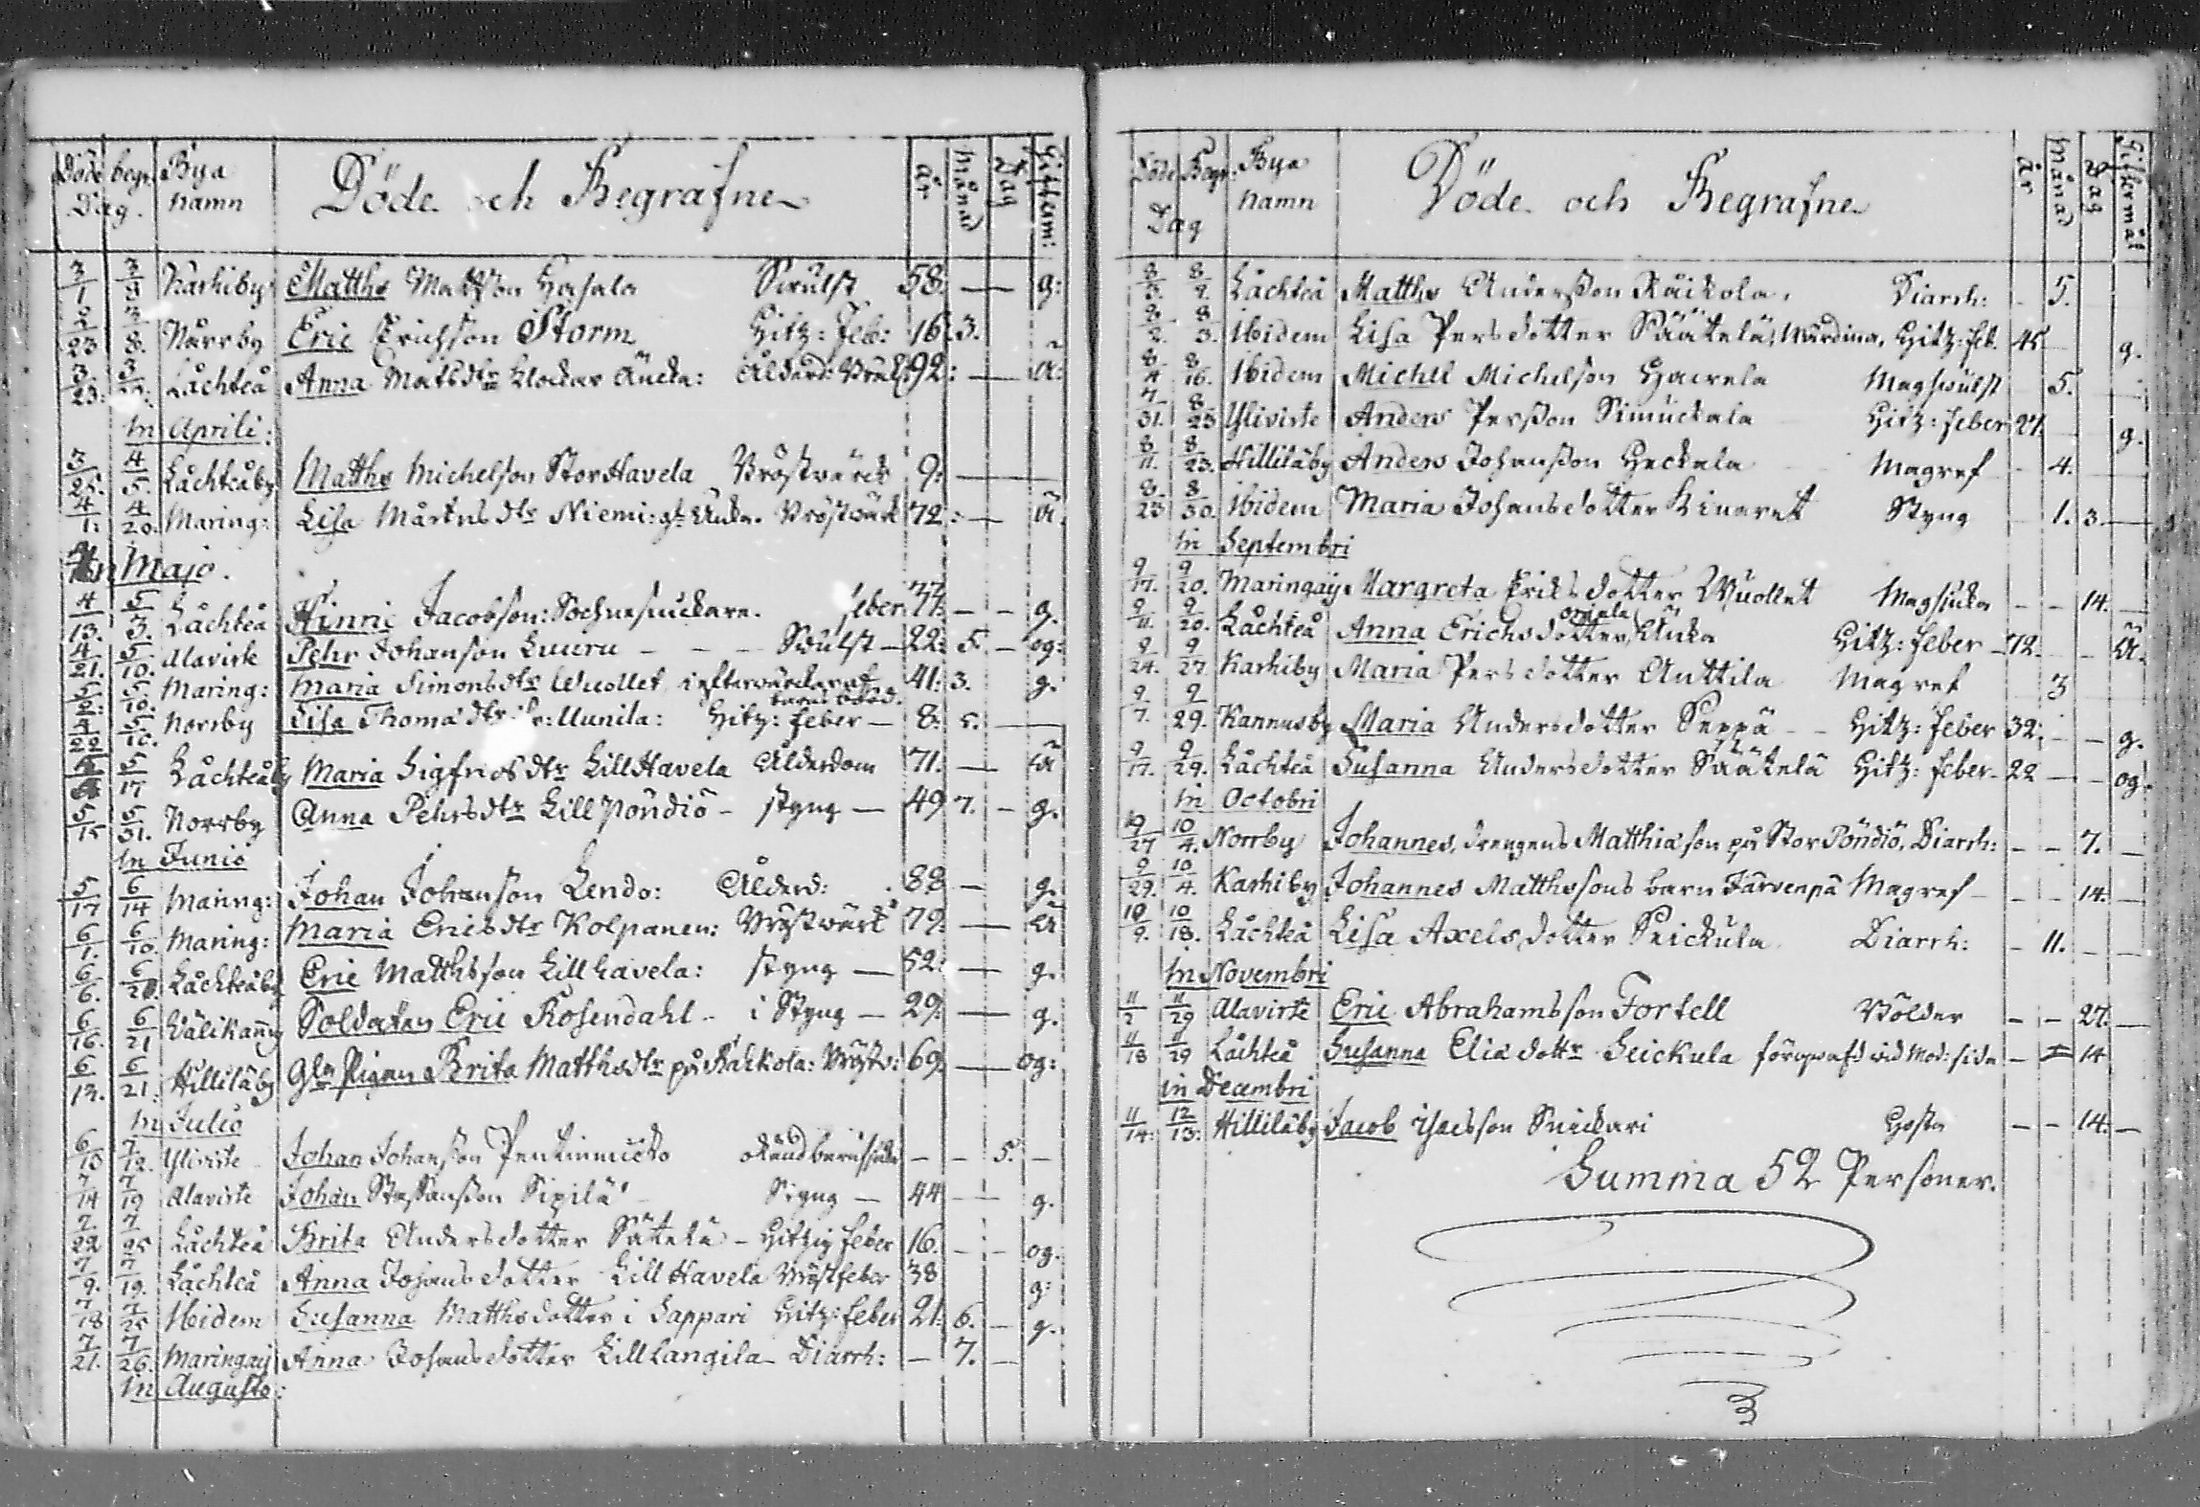 Döde begr. Bya Döde och Begrafne år Månad Dag Gifterm:
Dag. namn
3/1 3/3 Karhiby Matths Matsson Hasala Swulst 58. — g:
2/23 3/8. Norrby Eric Erichson Storm Hitz: feb: 16. 3.
3/23: 3/ Låchteå Anna Matsdtr Klockar Äncka: Ålderd: 92: — Ä:
In Aprili:
3/25. 4/5. Låchteåby Matths Michelson StorHavela Bröstwärck 9: —
4/1: 4/20. Maring: Lisa Mårtensdtr Niemi: Änka. Bröstwärk 72: — Ä.
In Majo.
4/13. 5/3. Låchteå Hinric Jacobson: Sochneskuckare. feber 77: — — g.
4/21. 5/10. Alavirte Pehr Johanson Luuru — — — Swulst — 22: 5. — og:
5/2: 5/10. Maring: Maria Simonsdtr Wuollet i efterwärckar af barns börd. 41: 3. g.
4/22 5/10. Norrby Lisa Thomædtr Uunila: Hitz: feber — 8: 5: —
5/17 Låchteåby Maria Sigfridsdtr LillHavela Ålderdom 71: — Ä
5/15 5/31. Norrby Anna Pehrsdtr Lill Pöndiö — styng — 49 7. — g.
In Junio
5/17 6/14 Maring: Johan Johanson Lendo: Ålderd: 88 — g.
6/1. 6/10. Maring: Maria Ericsdtr Kolpanen: Bröstwärk 79: — Ä
6/6. 6/ Låchteåby Eric Matthsson Lillhavela: styng — 52: — g.
6/16. 6/21 Wälikanng Soldaten Eric Rosendahl — i Styng — 29: — g.
6/12. 6/21: Hilliläby Gln Pigan Brita Matthsdtr på Räikola: Bröstw: 69: — og:
In Julio
6/ 7/12. Ylivirte Johan Johanson Pentinmicko okänd barnsjuka — — 5. —
7/14 7/19 Alavirte Johan Staffanson Sipilä — Styng — 44 — g.
7/22 7/25 Låchteå Brita Andersdotter Sätelä — Hitzig feber 16. — — og.
7/9. 7/19. Låchteå Anna Johansdotter LillHavela Bröstfeber 38 g:
7/18 7/25 Ibidem Susanna Matthsdotter i Sappari Hitz: feber 21: 6. — g.
7/21. 7/26. Maringaij Anna Johansdotter Lill Langila — Diarrh: — 7. —
In Augusto:
Döde Begr: Bya Döde och Begrafne år Månad Dag Giftermål
Dag namn
8/3. 8/9. Låchteå Matths Andersson Räickola. Diarrh: — 5.
8/2. 8/3. Ibidem Lisa Persdotter Säätelä, Hitz: feb. 45 g.
8/4 8/16. Ibidem Michel Michelson Hawela Magswulst — 5. —
7/31. 8/23 Ylivirte Anders Persson Simuckala Hitz: feber 27. g.
8/11. 8/23. Hilliläby Anders Johansson Heckala Magref — 4. —
8/23 8/30. Ibidem Maria Johansdotter Kinaret Styng — 1. 3. —
In Septembri
9/17. 9/20. Maringaij Margreta Ericsdotter Wuollet Magsjuka — — 14. —
9/11. 9/20. Låchteå Anna Erichsdotter Orjala Änka Hitz: feber — 72. — — Ä.
9/24. 9/27. Karhiby Maria Persdotter Anttila Magref 3 —
9/7. 9/29. Kannusby Maria Andersdotter Seppä — — Hitz: feber 32: — — g.
9/17. 9/29. Låchteå Susanna Andersdotter Säätelä Hitz: feber — 22 — — og.
In Octobri
27 10/4. Norrby Johannes, drengens Matthiæ son på StorPöndiö, Diarrh: — — 7. —
9/29. 10/4. Karhiby Johannes Matthssons barn Järvenpä Magref — — — 14. —
10/9. 10/18. Låchteå Lisa Axelsdotter Snickula Diarrh: — 11. — —
In Novembri
11/2 11/29 Alavirte Eric Abrahamsson Fortell Bölder — — 27. —
11/18 11/29 Låchteå Susanna Eliædottr Seickula förqwafd wid Mod: sida — — 14
in Decembri
11/14: 12/13: Hilliläby Jacob Isacsson Snickari Hosta — — 14. —
Summa 52 Personer.